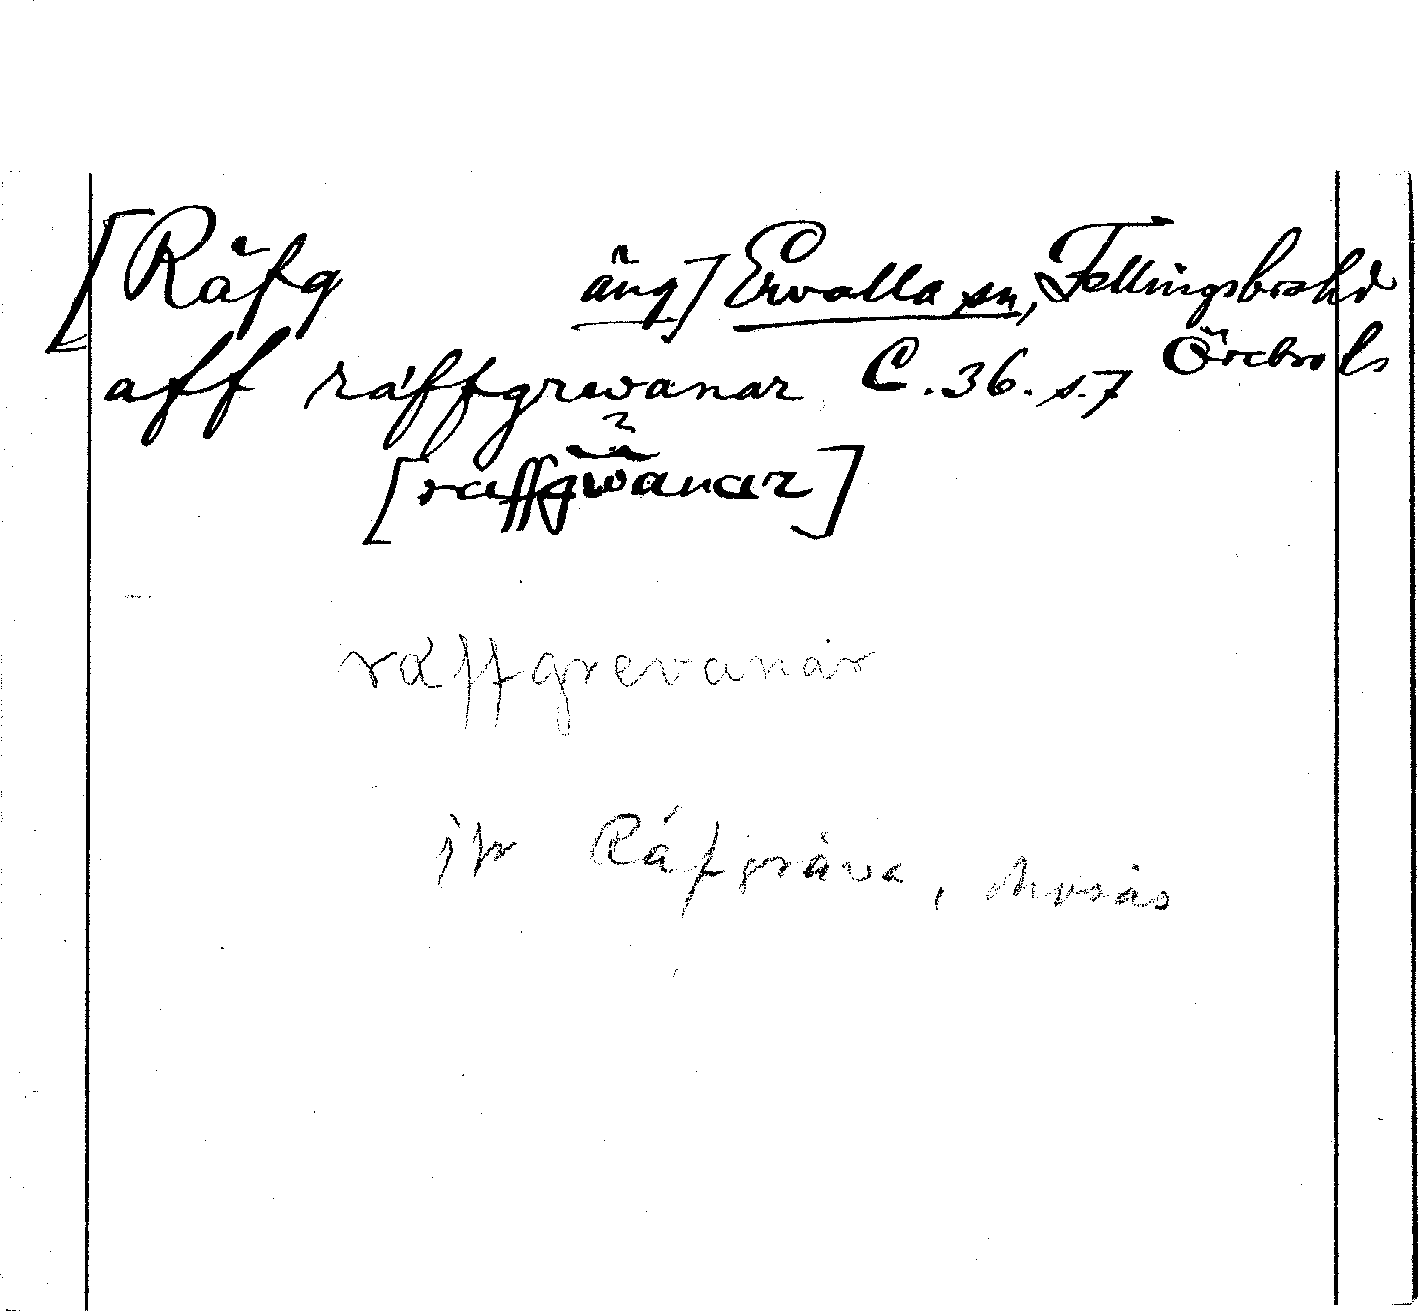 [Räfg äng] Ervalla sn, Fellingsbro hd
Örebro l
aff räffgrewanar C.36.s.7
[räffgrwanar]
räffgrevanar
jfr Räfgräva, Mosås